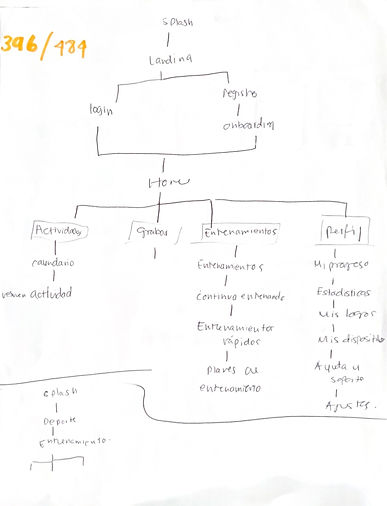 396/484
splash
Landing
login
Registro
onboarding
Home
Actividades
Grabar
Entrenamientos
Perfil
calendario
resumen actividad
Entrenamientos
continua entrenando
Entrenamientos
rápidos
planes de
entrenamiento
Mi progreso
Estadisticas
Mis logros
Mis dispositivos
Ayuda y
soporte
Ajustes.
splash
Deporte
Entrenamiento.